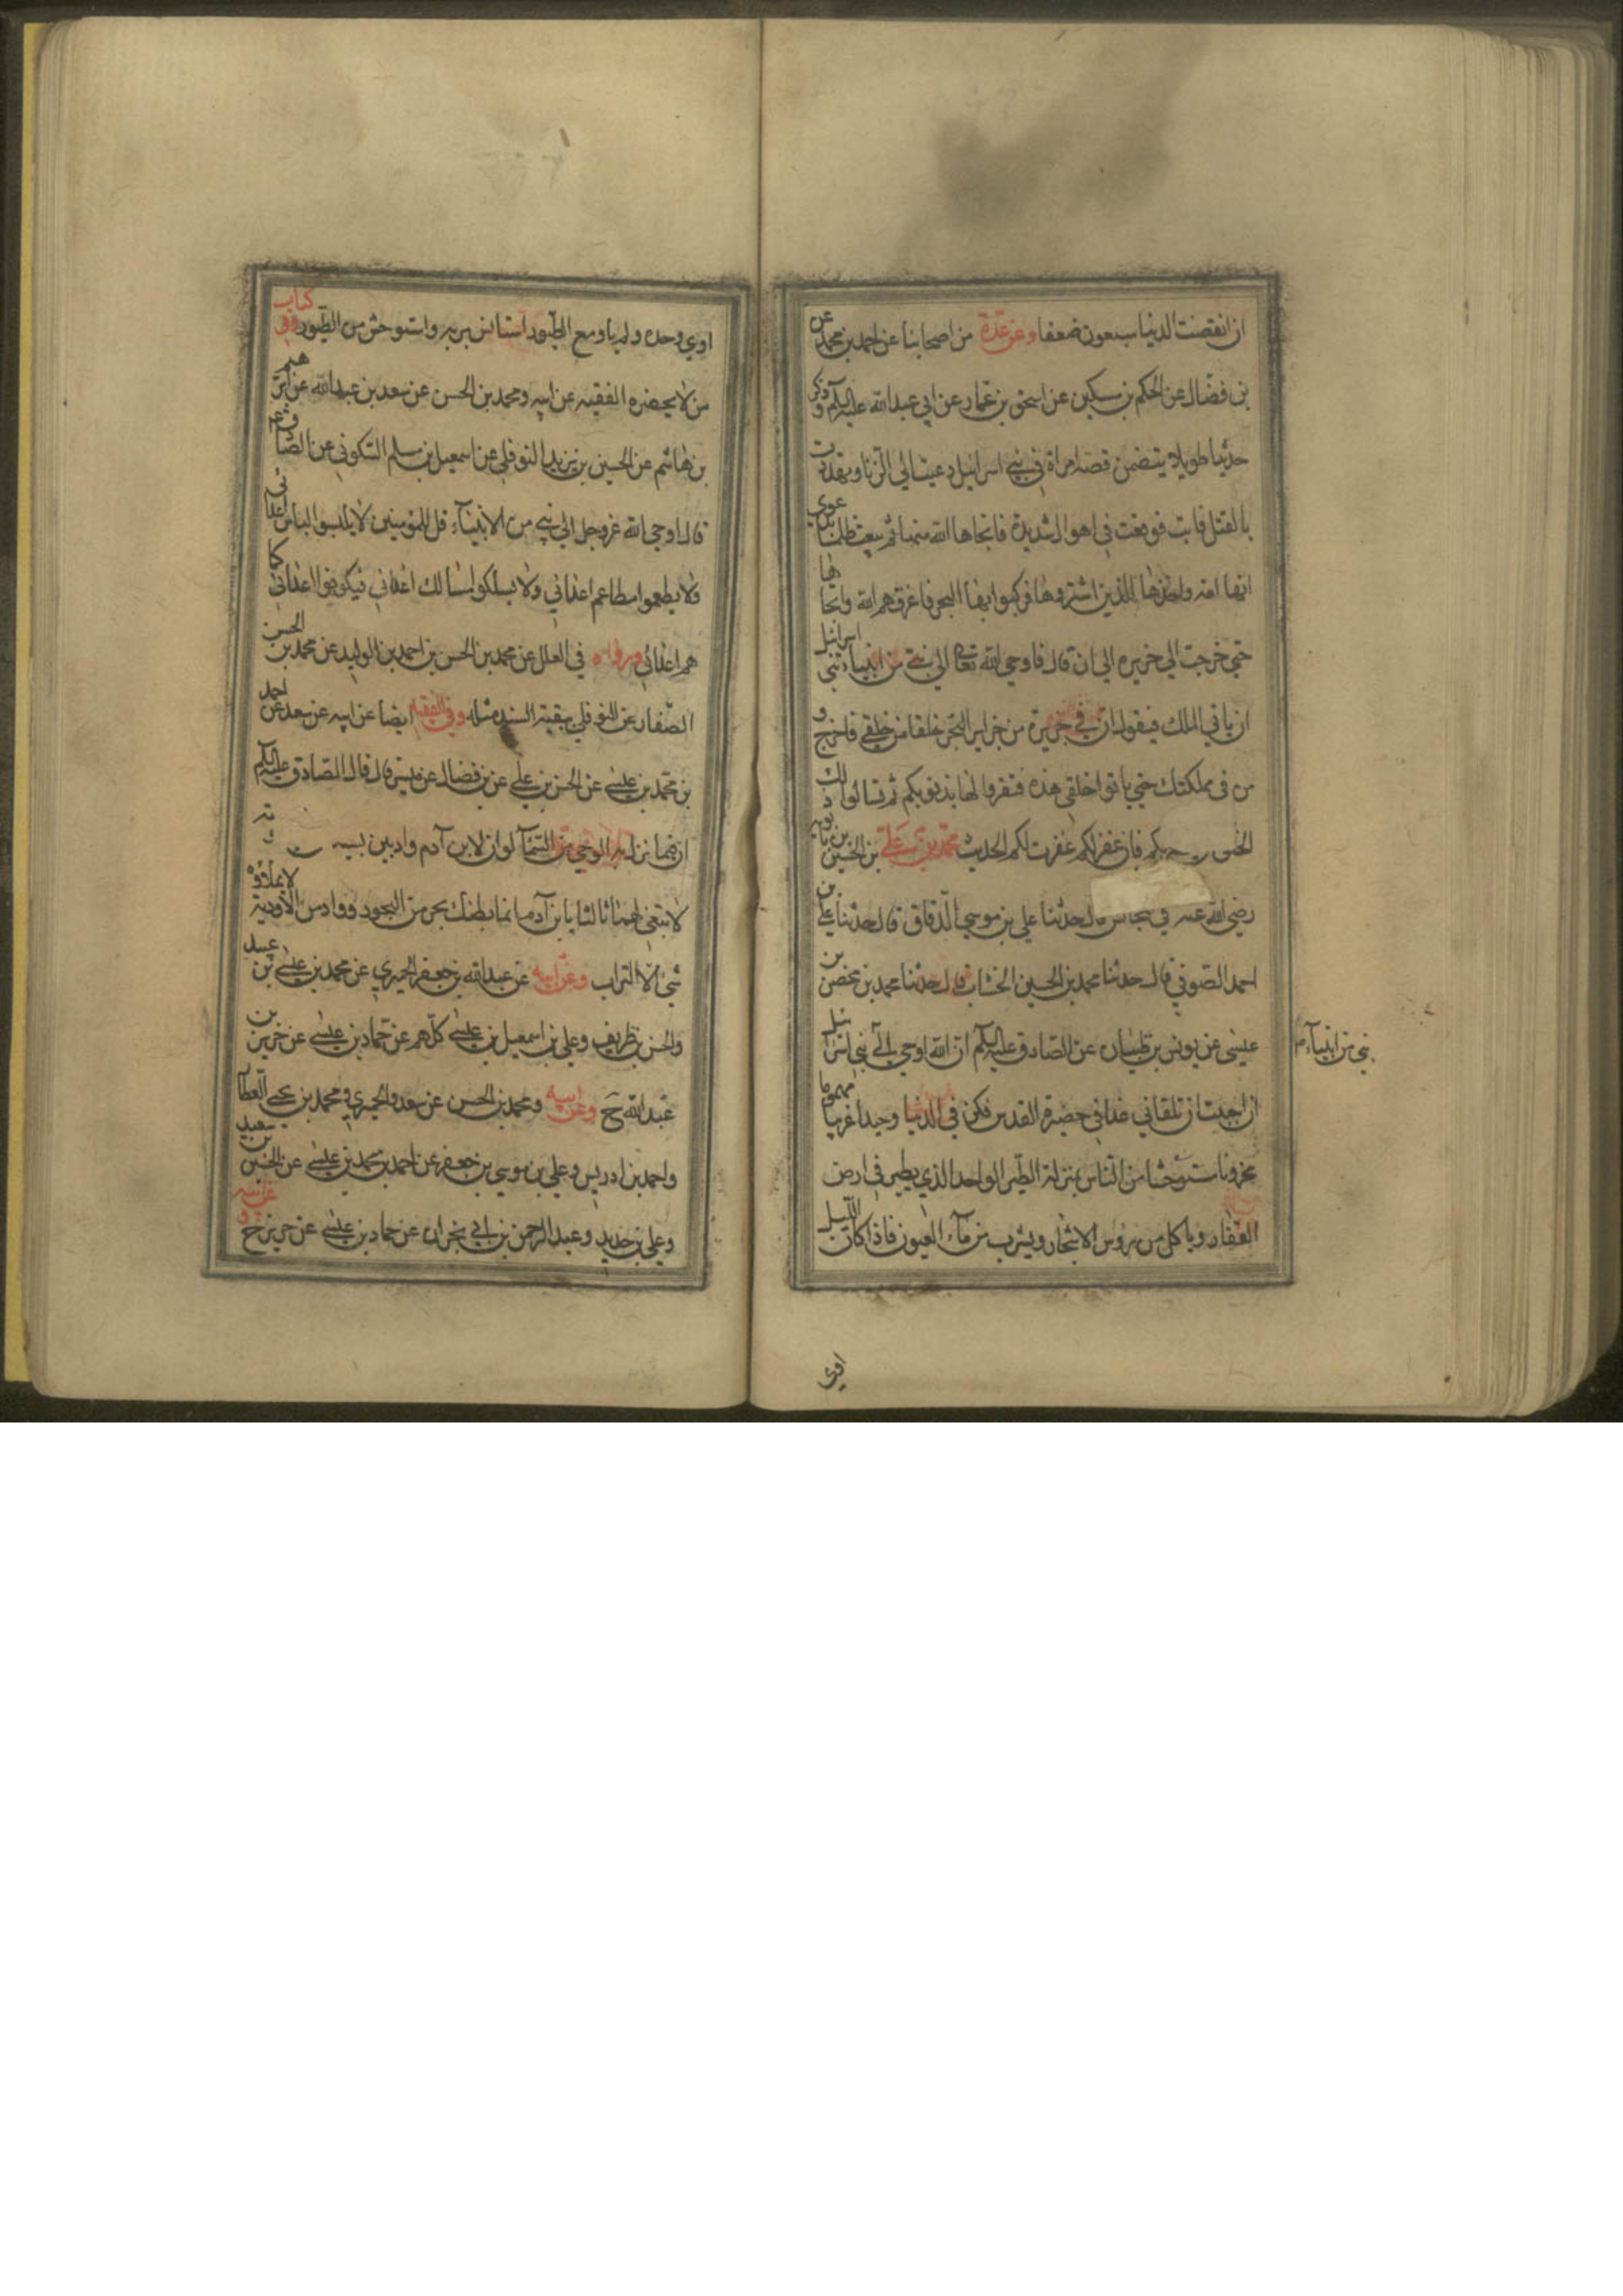 ان انقضت الدنيا سبعون ضعفا وعن عدة من اصحابنا عن احمد بن محمد عن
بن فضال عن الحكم بن مسكين عن اسحق بن عمار عن ابي عبد الله عليه السلم وذكر
حديثا طويلا يتضمن قصة امراة في بني اسرائيل دعيت الى الزنا وتهددت
بالقتل فابت فوقعت في اهوال شديدة فانجاها الله منها ثم بيعت ظلما بدعوى
انها امة واخذها الذين اشتروها فركبوا بها البحر فاغرقهم الله وانجاها
حتى خرجت الى جزيره الى ان قال فاوحى الله تعالى الى نبي من انبياء بني اسرائيل
ان ياتي الملك فيقول ان في جزيرة من جزاير البحر خلقا من خلقي فاخرج و
من في مملكتك حتى ياتوا خلقي هذه فتقروا لها بذنوبكم ثم تسالوا ذلك
الخلق رحمكم فان غفر لكم غفرت لكم الحديث محمد بن علي بن الحسين بن بابويه
رضي الله عنه في مجالس قال حدثنا علي بن موسى الدقاق قال حدثنا علي بن
احمد الصوفي قال حدثنا محمد بن الحسين الخشاب قال حدثنا محمد بن محصن بن
عيسى عن يونس بن ظبيان عن الصادق عليه السلم ان الله اوحى الى نبي اسرائيل
نبي من انبياء م
ان احببت ان تلقاني غدا في حضيرة القدس فكن في الدنيا وحيدا غريبا مهموما
محزونا مستوحشا من الناس بمنزلة الطير الواحد الذي يطير في ارض
القفار وياكل من رؤس الاشجار ويشرب من مآء العيون فاذا كان الليل
اوى
اوي وحده ولم ياو مع الطيور استانس بربه واستوحش من الطيور وفي كتاب
من لا يحضره الفقيه عن ابيه ومحمد بن الحسن عن سعد بن عبد الله عن ابراهيم
بن هاشم عن الحسين بن يزيد النوفلي عن اسمعيل بن مسلم السكوني عن الصادق ع
قال اوحى الله عز وجل الى نبي من الانبيآء قل للمؤمنين لا يلبسوا لباس اعدائي
ولا يطعموا مطاعم اعدائي ولا يسلكوا مسالك اعدائي فيكونوا اعدائي كما
هم اعدائي ورواه في العلل عن محمد بن الحسن بن احمد بن الوليد عن محمد بن الحسن
الصفار عن النوفلي ببقية السند مثله وفي الفقيه ايضا عن ابيه عن سعد عن احمد
بن محمد بن عيسى عن الحسن بن علي عن بن فضال عن ميسر قال قال الصادق عليه السلم
ان فيما نزل به الوحي من السمآ لو ان لابن آدم واديين
لابتغى لهما ثالثا يا بن آدم انما بطنك بحر من البحور وواد من الاودية لا يملاؤه
شئ الا التراب وعن ابيه عن عبد الله بن جعفر الحميري عن محمد بن عيسى بن عبيد
والحسن بن ظريف وعلي بن اسمعيل بن عيسى كلهم عن حماد بن عيسى عن حريز بن
عبد الله ح وعن ابيه ومحمد بن الحسن عن سعد والحميري ومحمد بن يحيى العطار
واحمد بن ادريس وعلي بن موسى بن جعفر عن احمد بن محمد بن عيسى عن الحسين بن سعيد
وعلي بن حديد وعبد الرحمن بن ابي نجران عن حماد بن عيسى عن حريز ح وعن ابيه